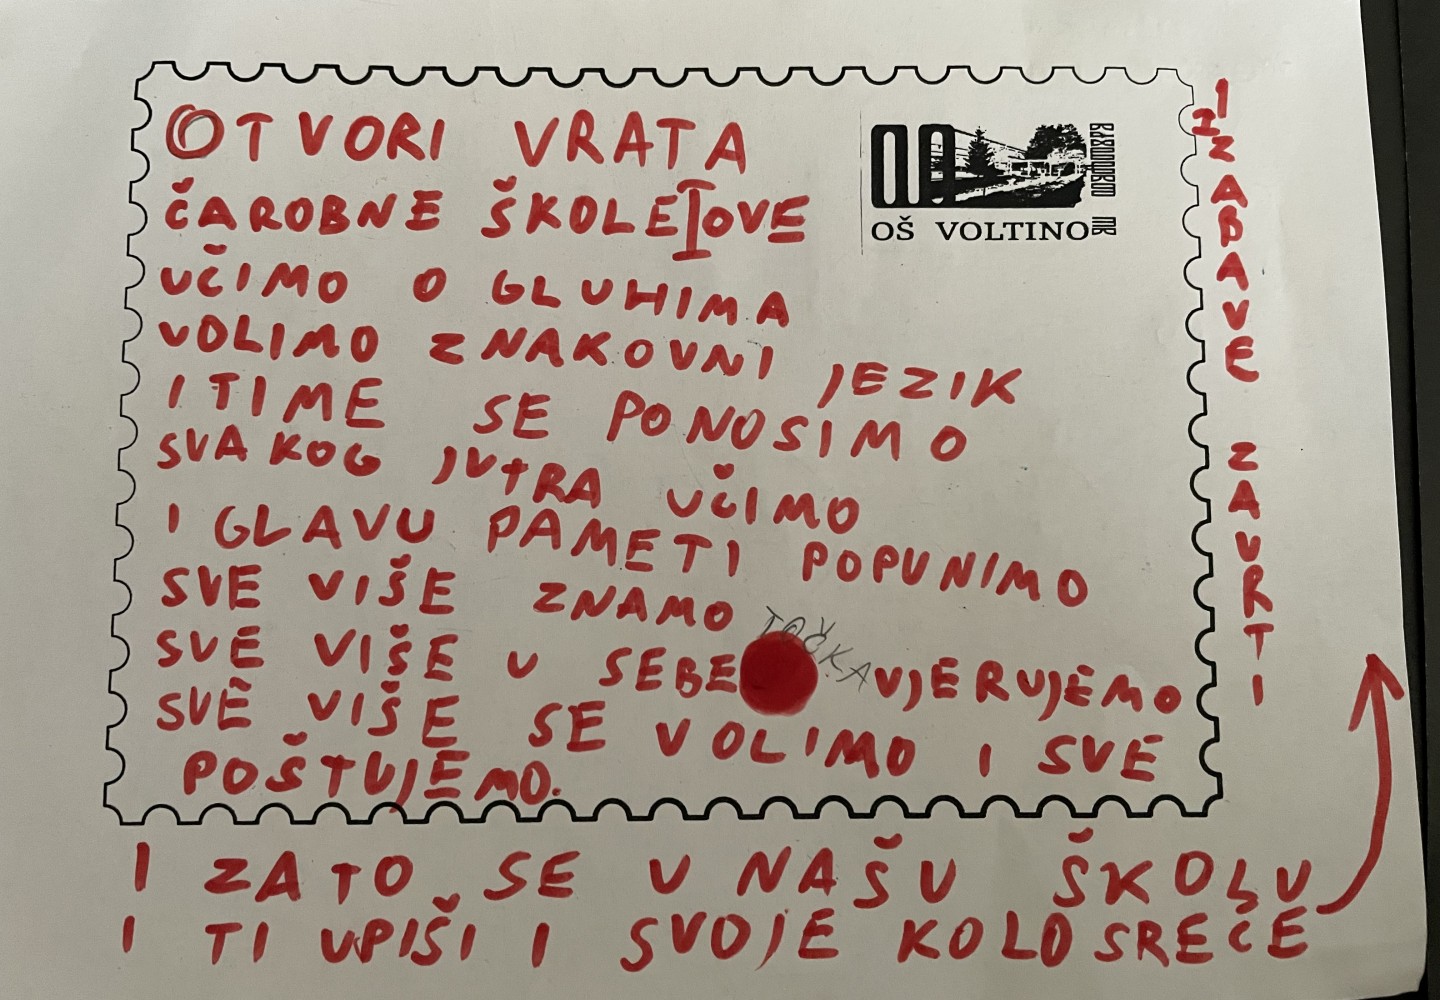 OTVORI VRATA
ČAROBNE ŠKOLE I OVE
UČIMO O GLUHIMA
VOLIMO ZNAKOVNI JEZIK
I TIME SE PONOSIMO
SVAKOG JUTRA UČIMO
I GLAVU PAMETI POPUNIMO
SVE VIŠE ZNAMO
SVE VIŠE U SEBE VJERUJEMO
TOČKA
SVE VIŠE SE VOLIMO I SVE
POŠTUJEMO.
I ZATO SE U NAŠU ŠKOLU
I TI UPIŠI I SVOJE KOLO SREĆE
IZ ZABAVE ZAVRTI
OŠ VOLTINO